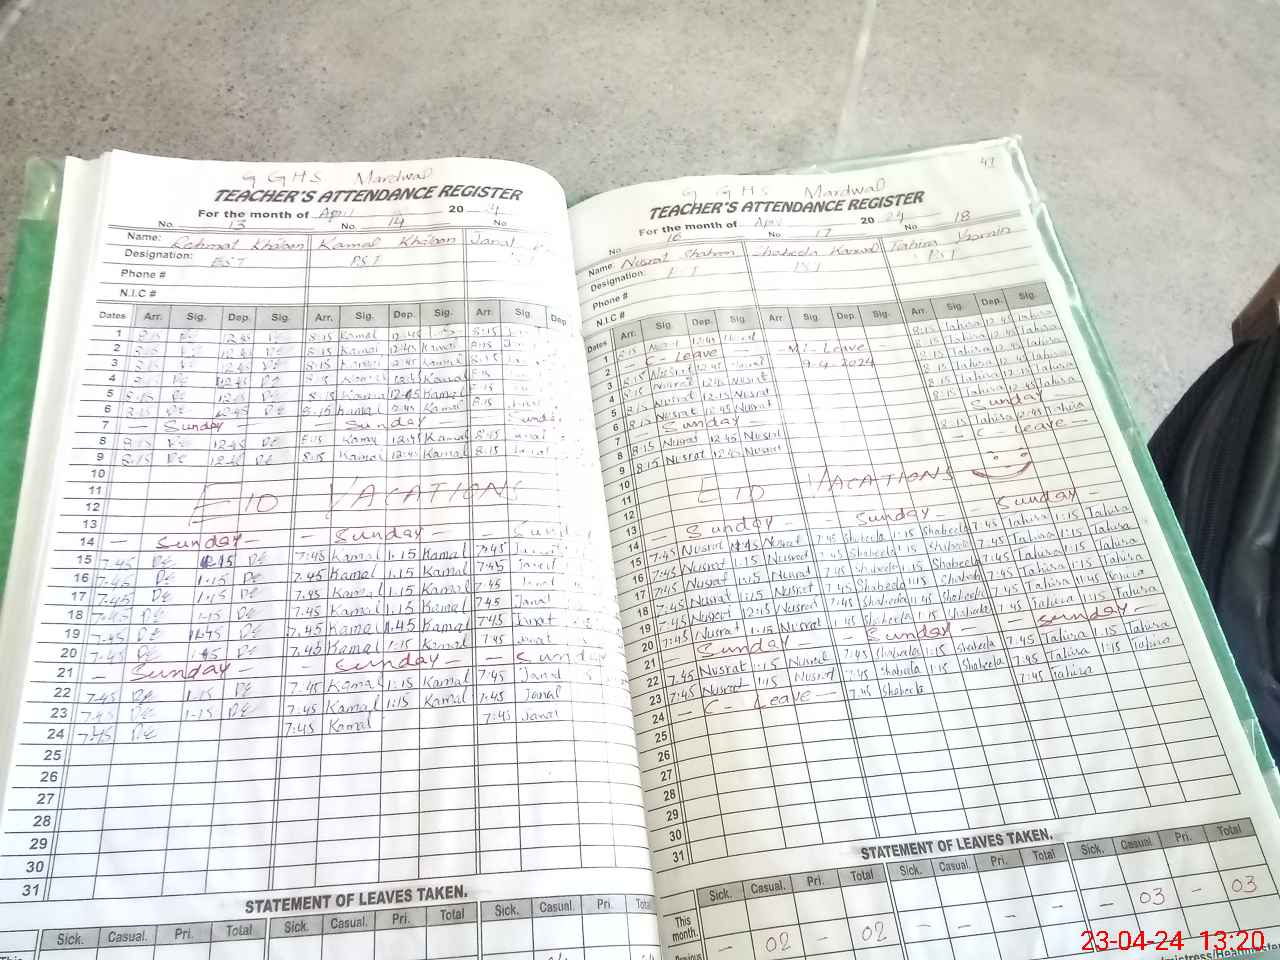 G G H S Mardwal
TEACHER'S ATTENDANCE REGISTER
For the month of April 20
No. 13 No. 14 No
Name: Rehmat Khatoon Kamal Khatoon Janat
Designation: PST PST
Phone #
N.I.C #
Dates Arr. Sig. Dep. Sig. Arr. Sig. Dep. Sig. Arr. Sig. Dep.
1 8:15 12:45 8:15 Kamal 12:45 8:15
2 8:15 Kamal 12:45 Kamal
3 8:15 Kamal 12:45 Kamal 8:15
4 12:45 Kamal Kamal
5 8:15 8:15 Kamal 12:45 Kamal 8:15
6 8:15 12:45 8:15 Kamal 12:45 Kamal 8:15
7 — Sunday — — Sunday — — Sunday
8 8:15 12:45 8:15 Kamal 12:45 Kamal 8:45
9 8:15 12:45 8:15 Kamal 12:45 Kamal 8:15
10
11 EID VACATIONS
12
13
14 — Sunday — — Sunday — — Sunday
15 7:45 1:15 7:45 Kamal 1:15 Kamal 7:45
16 7:45 1:15 7:45 Kamal 1:15 Kamal 7:45
17 7:45 1:15 7:45 Kamal 1:15 Kamal 7:45 Janat
18 7:45 1:15 7:45 Kamal 1:15 Kamal 7:45 Janat
19 7:45 7:45 Kamal 1:45 Kamal 7:45 Janat
20 7:45 7:45 Kamal 1:15 Kamal 7:45 Janat
21 — Sunday — — Sunday — — Sunday
22 7:45 1:15 7:45 Kamal 1:15 Kamal 7:45 Janat
23 7:45 1:15 7:45 Kamal 1:15 Kamal 7:45 Janat
24 7:45 7:45 Kamal 7:45 Janat
25
26
27
28
29
30
31
STATEMENT OF LEAVES TAKEN.
Sick. Casual. Pri. Total Sick. Casual. Pri. Total Sick. Casual. Pri. Total
43
G G H S Mardwal
TEACHER'S ATTENDANCE REGISTER
For the month of April 20 24
No 16 No. 17 No 18
Name: Nusrat Shaheen Shaheela Kanwal Tahira Yasmin
Designation: PST PST
Phone #
N.I.C #
Dates Arr. Sig. Dep. Sig. Arr. Sig. Dep. Sig. Arr. Sig. Dep. Sig.
1 8:15 Nusrat 12:45 Nusrat 8:15 Tahira 12:45 Tahira
2 — C - Leave — — M - Leave — 8:15 Tahira 12:45 Tahira
3 8:15 Nusrat 12:45 Nusrat 9-4-2024 8:15 Tahira 12:45 Tahira
4 8:15 Nusrat 12:45 Nusrat 8:15 Tahira 12:45 Tahira
5 8:15 Nusrat 12:15 Nusrat 8:15 Tahira 12:45 Tahira
6 8:15 Nusrat 12:45 Nusrat 8:15 Tahira 12:45 Tahira
7 — Sunday — — Sunday —
8 8:15 Nusrat 12:45 Nusrat 8:15 Tahira 12:45 Tahira
9 8:15 Nusrat 12:45 Nusrat — C - Leave —
10
11 EID VACATIONS
12
13
14 — Sunday — — Sunday — — Sunday —
15 7:45 Nusrat 1:15 Nusrat 7:45 Shaheela 1:15 Shaheela 7:45 Tahira 1:15 Tahira
16 7:45 Nusrat 1:15 Nusrat 7:45 Shaheela 1:15 Shaheela 7:45 Tahira 1:15 Tahira
17 7:45 Nusrat 1:15 Nusrat 7:45 Shaheela 1:15 Shaheela 7:45 Tahira 1:15 Tahira
18 7:45 Nusrat 1:15 Nusrat 7:45 Shaheela 1:15 Shaheela 7:45 Tahira 1:45 Tahira
19 7:45 Nusrat 12:15 Nusrat 7:45 Shaheela 11:45 Shaheela 7:45 Tahira 11:45 Tahira
20 7:45 Nusrat 1:15 Nusrat 7:45 Shaheela 1:15 Shaheela 7:45 Tahira 1:15 Tahira
21 — Sunday — — Sunday — — Sunday —
22 7:45 Nusrat 1:15 Nusrat 7:45 Shaheela 1:15 Shaheela 7:45 Tahira 1:15 Tahira
23 7:45 Nusrat 1:15 Nusrat 7:45 Shaheela 1:15 Shaheela 7:45 Tahira 1:15 Tahira
24 — C - Leave — 7:45 Shaheela 7:45 Tahira
25
26
27
28
29
30
31
STATEMENT OF LEAVES TAKEN.
Sick. Casual. Pri. Total Sick. Casual. Pri. Total Sick. Casual. Pri. Total
This month. — 02 — 02 — — — — — 03 — 03
23-04-24 13:20